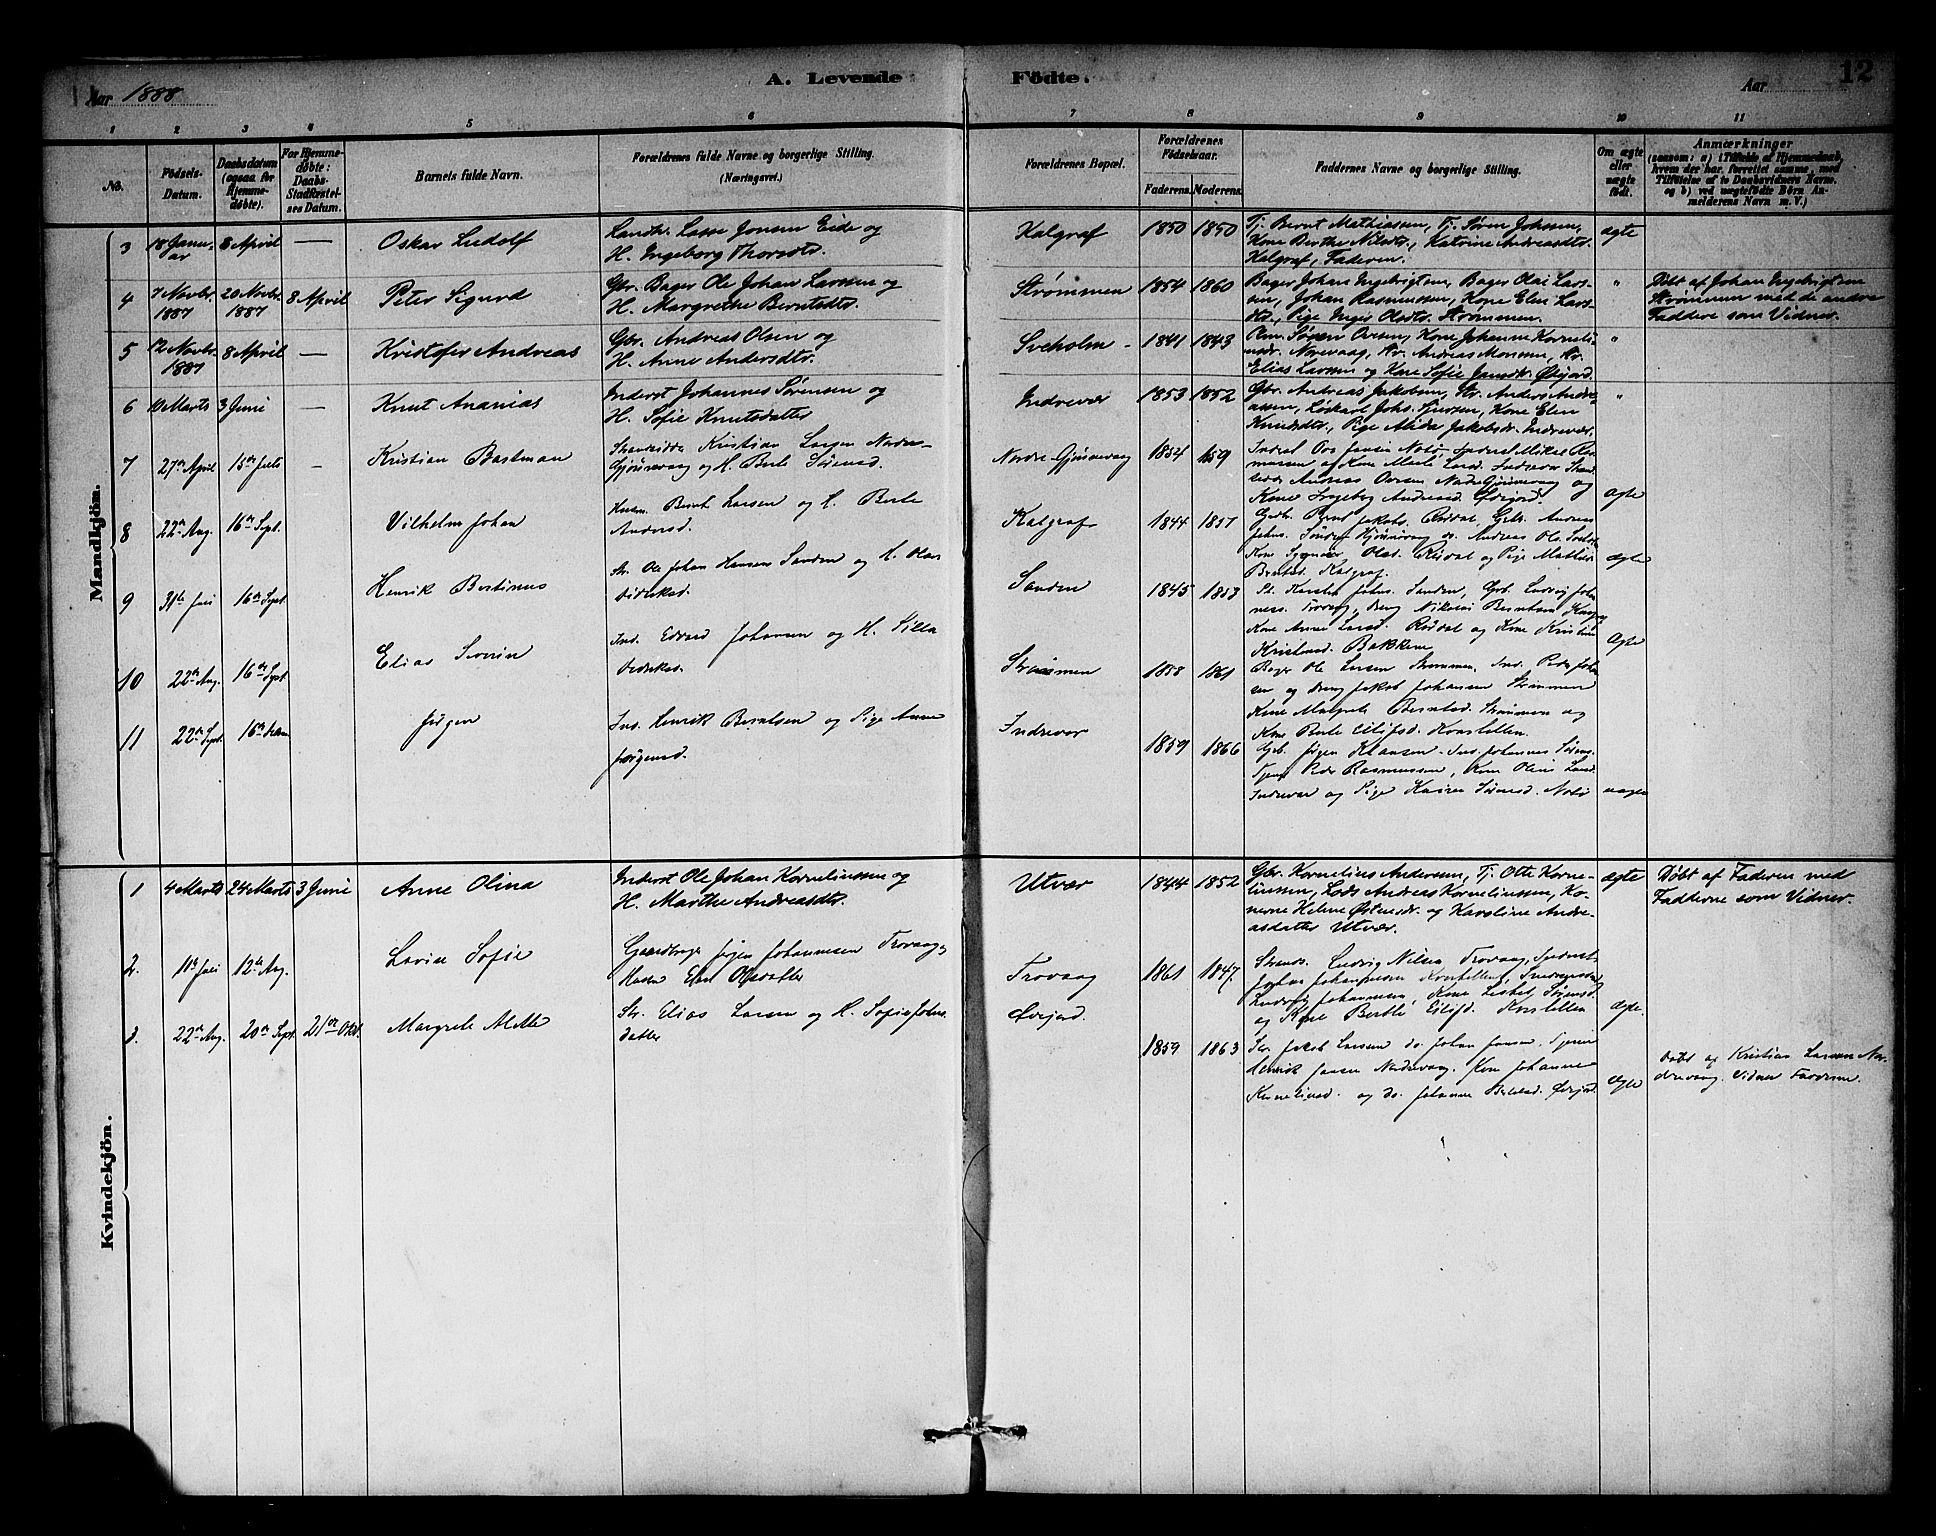 Aar 1888
A. Levende
Födte.
Aar
12
1 2 3 4 5 6 7 8 9 10 11
No.
Födsels-Datum.
Daabsdatum (ogsaa for Hjemme-døbte).
For Hjemme-døbte: Daabs-Stadfæstel-ses Datum.
Barnets fulde Navn.
Forældrenes fulde Navne og borgerlige Stilling.
(Næringsvei.)
Forældrenes Bopæl.
Forældrenes Födselsaar.
Faderens. Moderens.
Faddernes Navne og borgerlige Stilling.
Om ægte eller uægte födt.
Anmærkninger
(saasom: a) i Tilfælde af Hjemmedaab,
hvem der har forrettet samme, med
Tilføielse af to Daabsvidners Navne.
og b) ved uægtefödte Börn An-
melderens Navn m. V.)
Mandkjön.
3 18 Janu-ar 8 April — Oskar Ludolf
Landhr. Lasse Jonsen Eide og
H. Ingeborg Thorsdtr.
Kalgraf 1850 1850
Tj. Bernt Mathiassen, Tj. Søren Johnsen,
Kone Berthe Nilsdtr., Katrine Andreasdtr.
Kalgraf, Faderen.
ægte
4 7 Novbr. 1887 20 Novbr. 1887 8 April Peter Sigurd
Gbr. Bager Ole Johan Larsen og
H. Margrethe Berntsdtr.
Strømmen 1854 1860
Bager Johan Ingebrigtsen, Bager Olai Lars-
sen, Johan Rasmussen, Kone Elen Lars-
dtr., Pige Inger Olsdtr. Strømmen.
"
Døbt af Johan Ingebrigtsen
Strømmen med de andre
Faddere som Vidner.
5 12 Novbr. 1887 8 April — Kristofer Andreas
Gbr. Andreas Olsen og
H. Anne Andersdtr.
Sveholm 1841 1843
Søren Oversen, Kone Johanne Korneli-
usdr. Norevaag, Str. Andreas Monsen, Str.
Elias Larsen og Kone Sofie Jansdtr. Øiejord.
"
6 10 Marts 3 Juni — Knut Ananias
Inderst Johannes Sørensen og
H. Sofie Knutsdatter
Indrevær 1853 1852
Gbr. Andreas Jakobsen, Str. Anders Andre-
assen, Løskarl Johs. Sjursen, Kone Elen
Knudsdtr., Pige Alida Jakobsdr. Indrevær.
"
7 27de April 15de Juli — Kristian Bastman
Strandsidder Kristian Larsen Nordre-
Gjønnevaag og H. Berte Sørensd.
Nordre-Gjønnevaag 1854 1859
Andreas Oversen Nordre Gjønnevaag og
Kone Ingeborg Andersd. Øiejord
Ægte
8 22de Aug. 16de Sept. Vilhelm Johan
Husm. Bernt Larsen og H. Berte
Andersd.
Kalgraf 1844 1857
Kone Olsd. Risdal og Pige Mathea
Berntsd. Kalgraf.
Ægte
9 31te Juli 16de Sept. Henrik Bertinus
Str. Ole Johan Hansen Sanden og H. Oline
Didriksd.
Sanden 1845 1853
St. Karsten Johns. Sanden, Grb. Ludvig Johan-
ness. Trovaag, dreng Nikolai Berntsen
Kone Anne Larsd. Røddal og Kone Kristine
Kristensd. Bakken
Ægte
10 22de Aug. 16de Sept. Elias Severin
Ind. Edvard Johansen og H. Silla
Didriksd.
Strømmen 1858 1861
Bager Ole Larsen Strømmen, Ind. Peder Johan-
sen og dreng Jakob Johansen Strømmen
Kone Malgrete Berntsd. Strømmen og
Kone Berte Eilifsd. Korstillen.
11 22de Sept. 16de Jürgen
Ins. Henrik Berntsen og Pige Anne
Jørgensd.
Indrevær 1859 1866
Grb. Jørgen Klausen. Ins. Johannes Sørens.
Tjener Peder Rasmussen, Kone Oline Larsd.
Indrevær og Pige Karen Sørensd. Notø
uægte
Kvindekjön.
1 4 Marts 24 Marts 3 Juni Anne Olina
Inderst Ole Johan Korneliussen og
H. Marthe Andreasdtr.
Utvær 1844 1852
Gbr. Kornelius Andersen, Tj. Otte Korne-
liussen, Lods Andreas Korneliussen, Ko-
nerne Helene Østensdr. og Karoline Andre-
asdatter Utvær.
ægte
Døbt af Faderen med
Fadderne som Vidner.
2. 11te Juli 12te Aug. Lovise Sofie
Gaardbruger Jørgen Johannesen Trovaag,
Hustru Elen Olsdatter
Trovaag 1861 1847.
Strands. Ludvig Nilsen Trovaag, Inderst
Johan Johannesen Korstillen,
Ludvig Johannesen, Kone Lisbet Sørensd.
og Kone Berthe Eilifsd. Korstillen
Ægte.
3. 22de Aug. 20de Sept. 21de Okt. Margrete Mette
Str. Elias Larsen og H. Sofie Johns-
datter
Øiejord. 1859 1863
Str. Jakob Larsen do. Johan Jansen. Tjener
Henrik Jansen Nordrevaag. Kone Johanne
Korneliusd. og do. Johanne Øiejord
Ægte
Døbt af Kristian Larsen No-
drevaag. Vidner Fadderne.